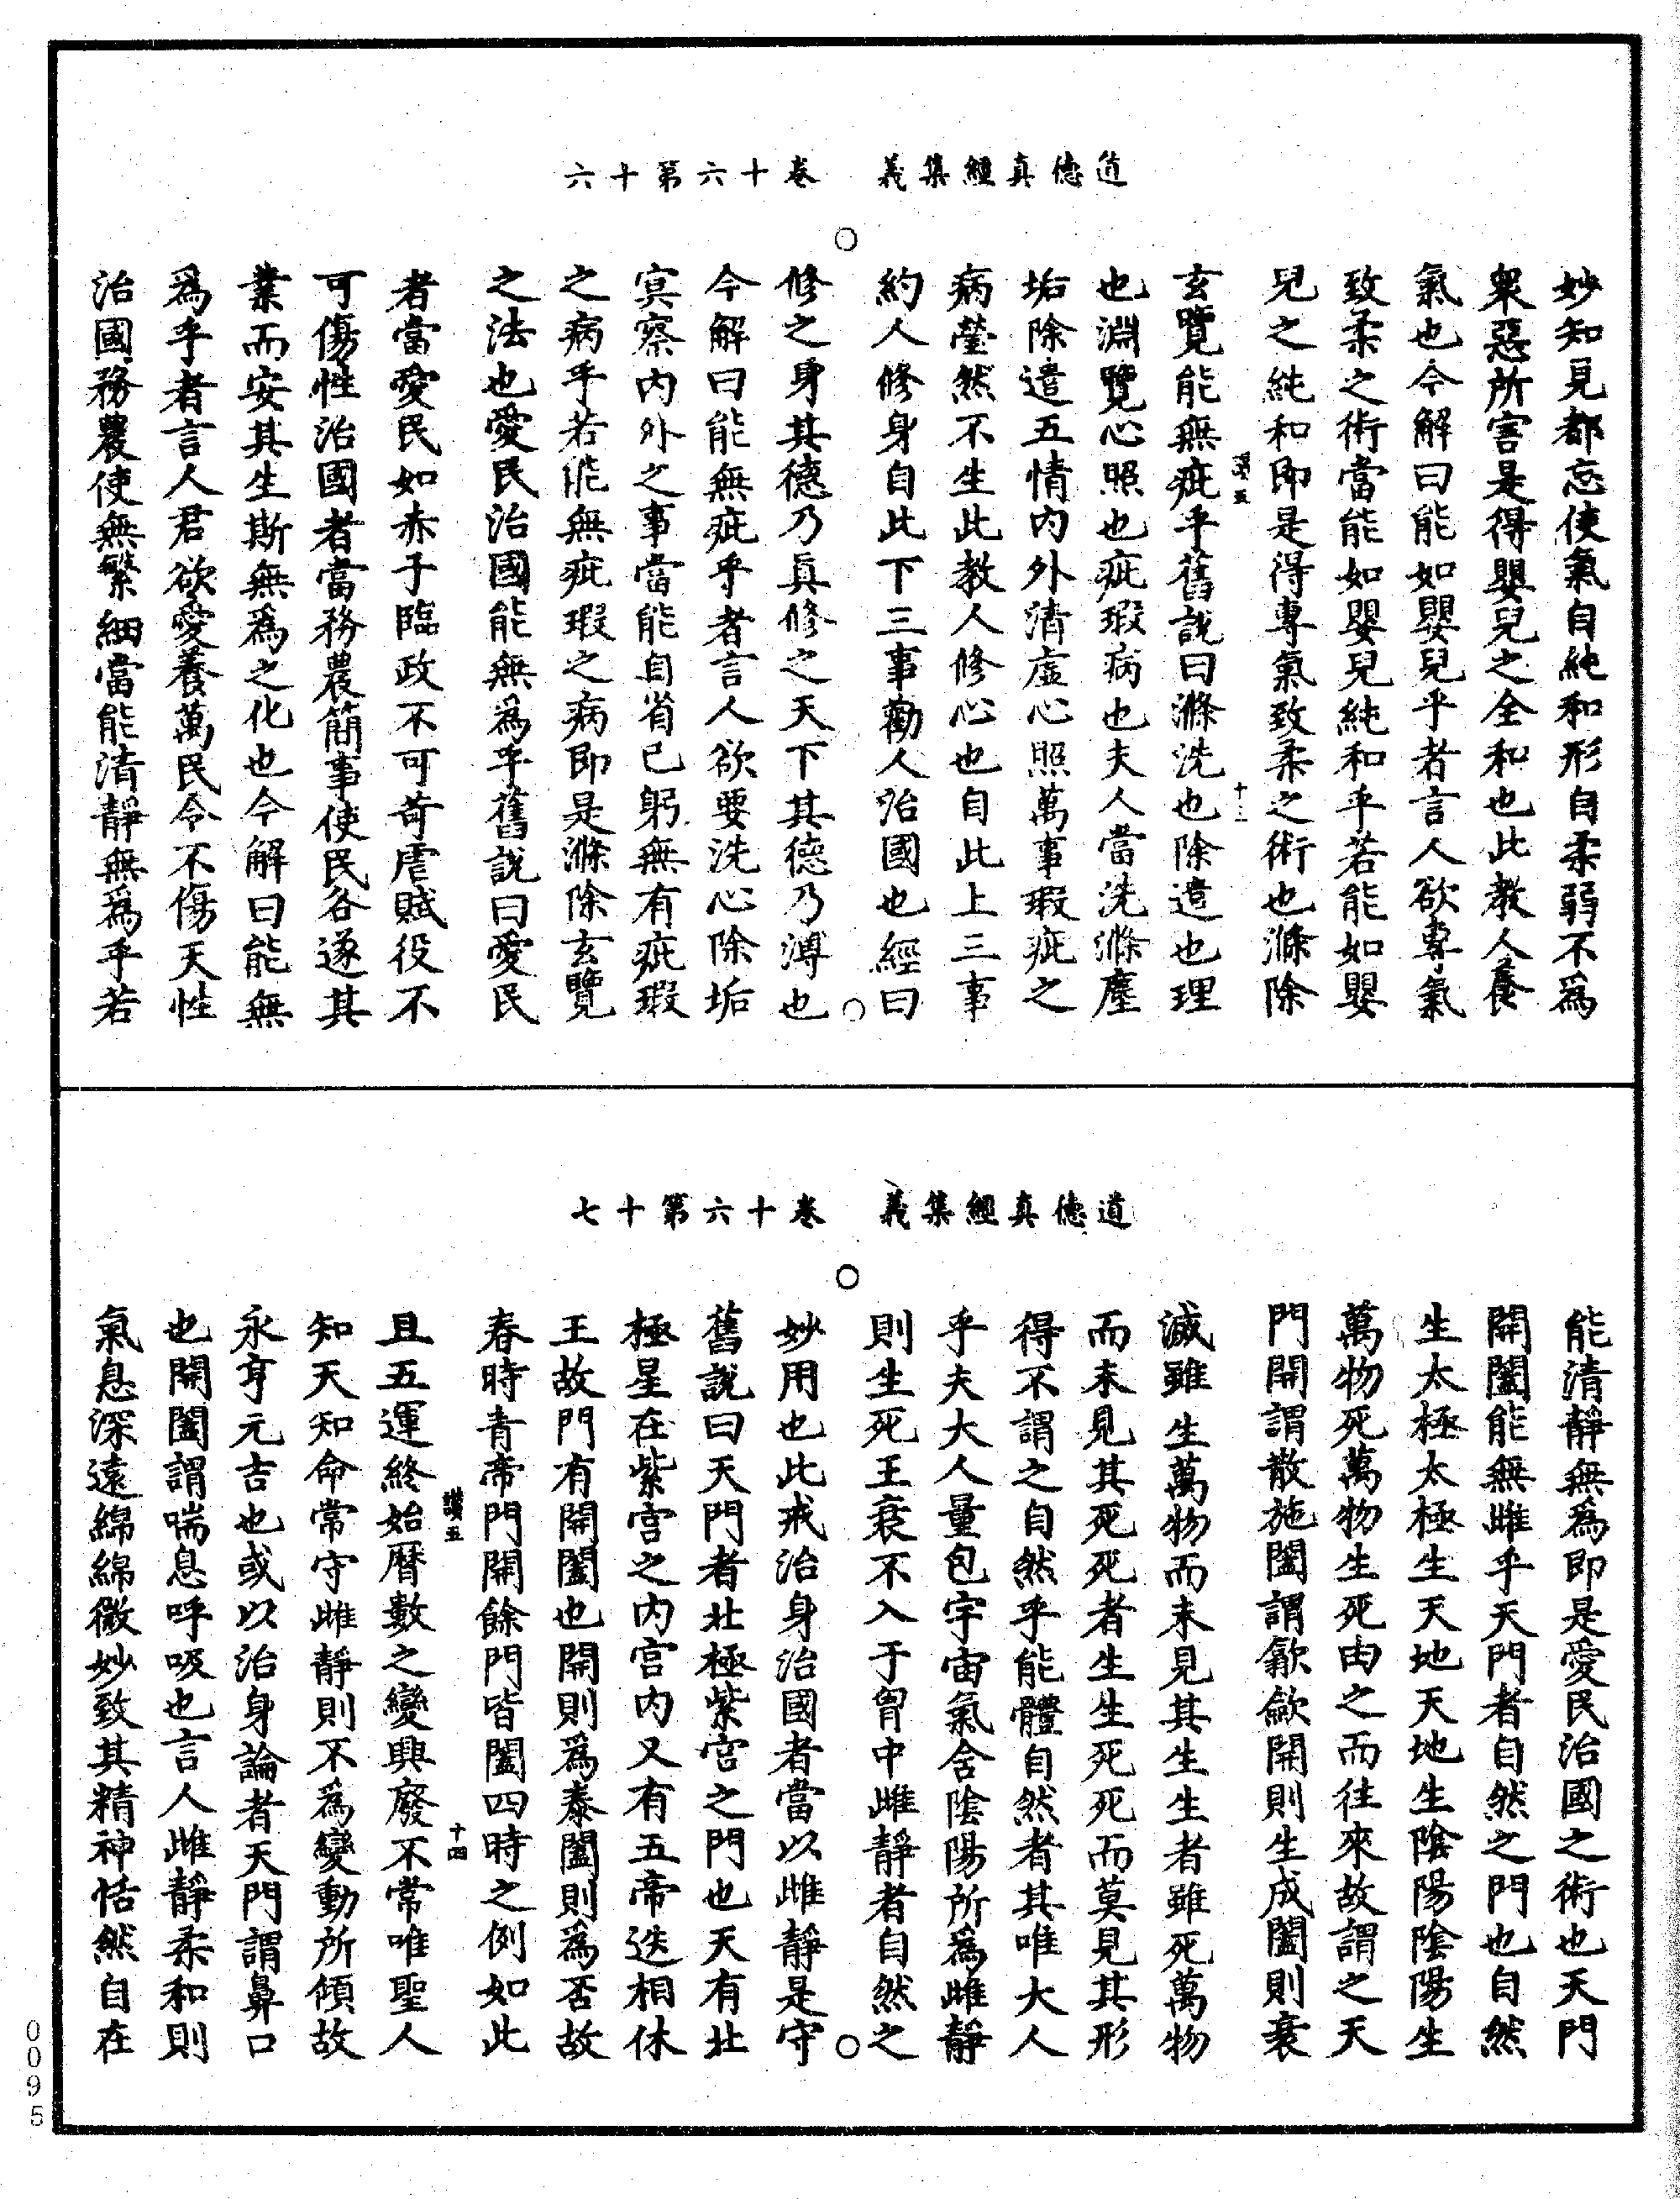 道德真經集義　卷十六第十六
妙知見都忘使氣自純和形自柔弱不爲
衆惡所害是得嬰兒之全和也此教人養
氣也今解曰能如嬰兒乎者言人欲專氣
致柔之術當能如嬰兒純和乎若能如嬰
兒之純和即是得專氣致柔之術也滌除
讃五　十三
玄覽能無疵乎舊說曰滌洗也除遣也理
也淵覽心照也疵瑕病也夫人當洗滌塵
垢除遣五情內外清虛心照萬事瑕疵之
病瑩然不生此教人修心也自此上三事
約人修身自此下三事勸人治國也經曰
修之身其德乃眞修之天下其德乃溥也
今解曰能無疵乎者言人欲要洗心除垢
冥察內外之事當能自省己躬無有疵瑕
之病乎若能無疵瑕之病即是滌除玄覽
之法也愛民治國能無爲乎舊說曰愛民
者當愛民如赤子臨政不可苛虐賦役不
可傷性治國者當務農簡事使民各遂其
業而安其生斯無爲之化也今解曰能無
爲乎者言人君欲愛養萬民令不傷天性
治國務農使無繁細當能清靜無爲乎若
道德真經集義　卷十六第十七
能清靜無爲即是愛民治國之術也天門
開闔能無雌乎天門者自然之門也自然
生太極太極生天地天地生陰陽陰陽生
萬物死萬物生死由之而往來故謂之天
門開謂散施闔謂歙斂開則生成闔則衰
滅雖生萬物而未見其生生者雖死萬物
而未見其死死者生生死死而莫見其形
得不謂之自然乎能體自然者其唯大人
乎夫大人量包宇宙氣含陰陽所爲雌靜
則生死王衰不入于胷中雌靜者自然之
妙用也此戒治身治國者當以雌靜是守
舊說曰天門者北極紫宮之門也天有北
極星在紫宮之內宮內又有五帝迭相休
王故門有開闔也開則爲泰闔則爲否故
春時青帝門開餘門皆闔四時之例如此
讃五　十四
且五運終始曆數之變興廢不常唯聖人
知天知命常守雌靜則不爲變動所傾故
永亨元吉也或以治身論者天門謂鼻口
也開闔謂喘息呼吸也言人雌靜柔和則
氣息深遠綿綿微妙致其精神恬然自在
0095